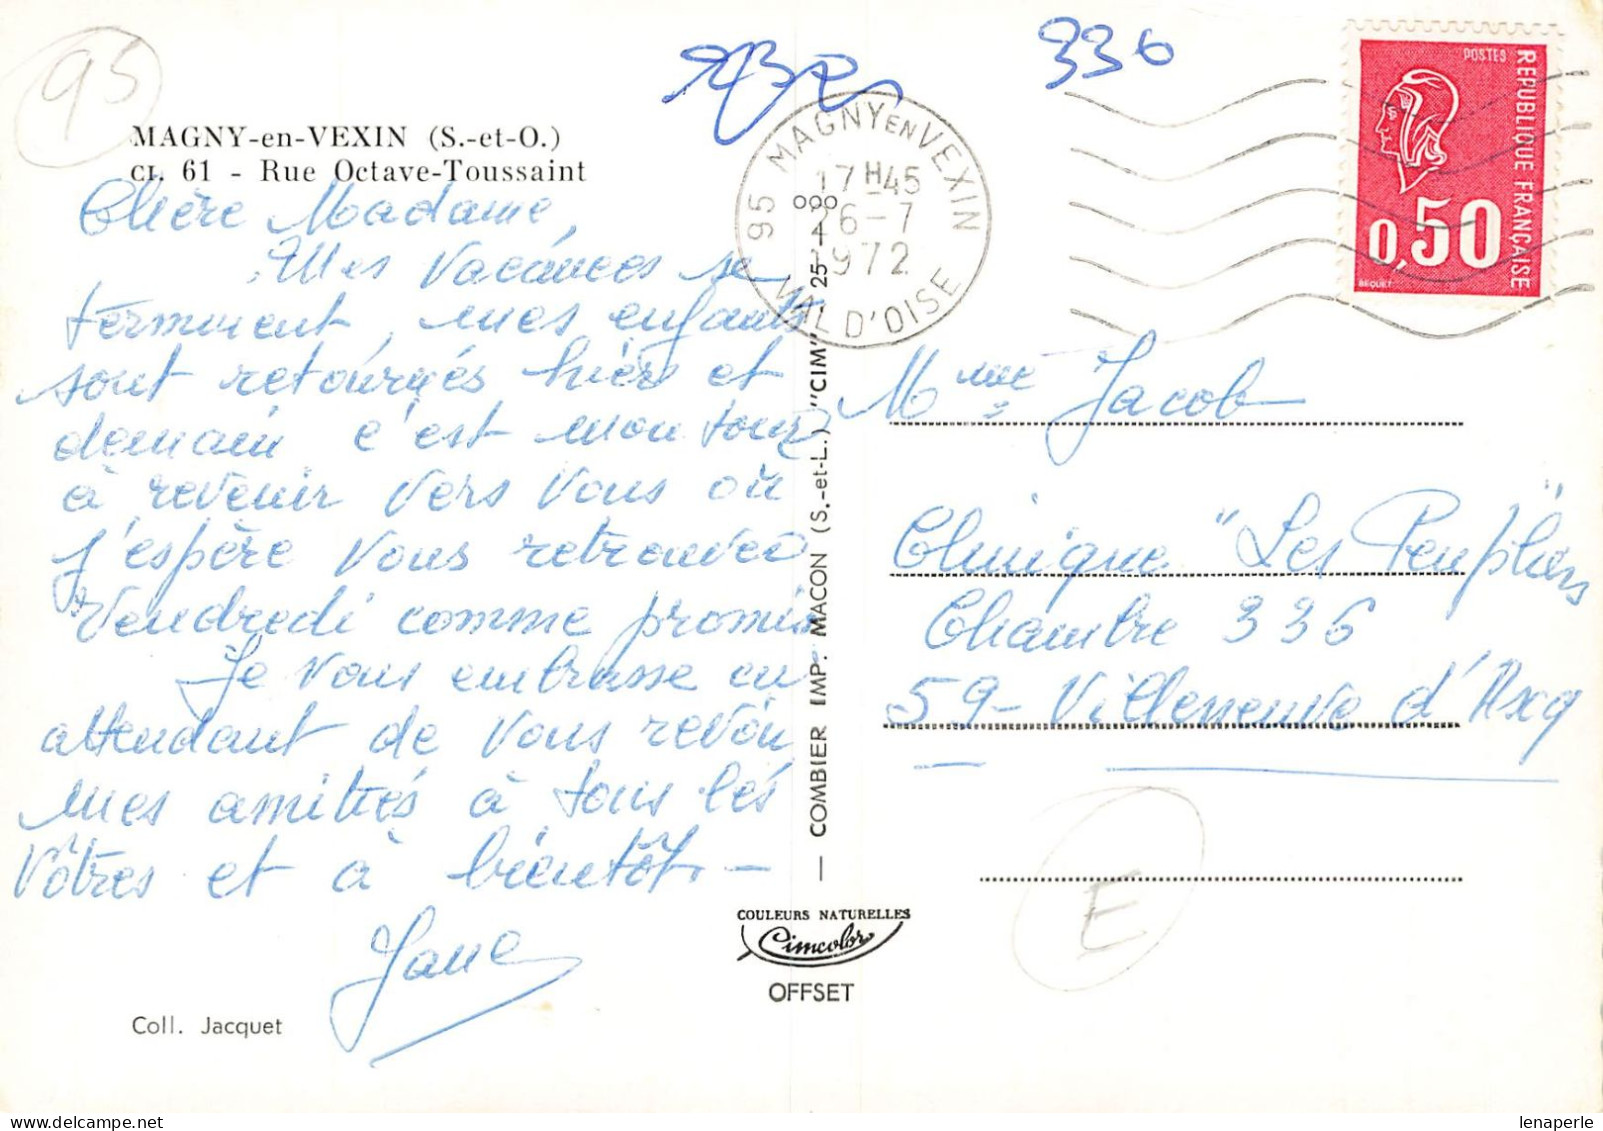 95
336
MAGNY-en-VEXIN (S.-et-O.)
CI. 61 - Rue Octave-Toussaint
Chère Madame,
Mes vacances se
terminent, mes enfants
sont retournés hier et
demain c'est mon tour
à revenir vers vous où
j'espère vous retrouver
Vendredi comme promis
Je vous embrasse en
attendant de vous revoir
mes amitiés à tous les
vôtres et à bientôt. -
Jane
Coll. Jacquet
95 MAGNY EN VEXIN
17H45
26-7
1972
VAL D'OISE
POSTES
REPUBLIQUE FRANÇAISE
0,50
BEQUET
COMBIER IMP. MACON (S.-et-L.) "CIM"
Mme Jacob
Clinique "Les Peupliers
Chambre 336
59 - Villeneuve d'Ascq
E
COULEURS NATURELLES
Cimcolor
OFFSET
lenaperle